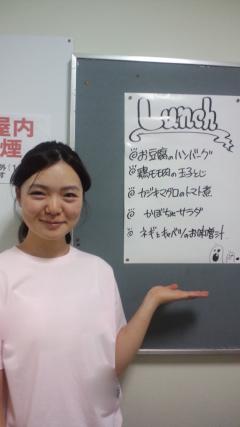 屋内
煙
Lunch
お豆腐のハンバーグ
鶏モモ肉の玉子とじ
カジキマグロのトマト煮
かぼちゃサラダ
ネギとキャベツのお味噌汁